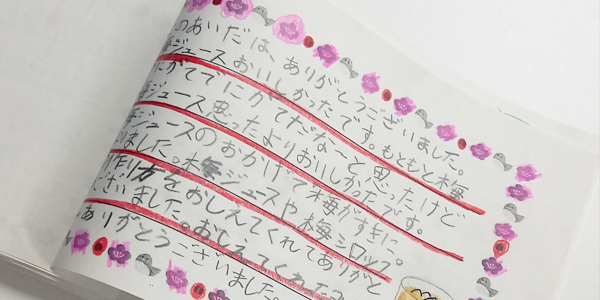 のあいだは、ありがとうございました。
ジュースおいしかったです。もともと梅
がてでにがてだな〜と思ったけど
ジュース思ったよりおいしかたです。
ジュースのおかげで梅がすきに。
ました。梅ジュースや梅シロップ
作り方をおしえてくれてありがと
ございました。おしえてくれた
ありがとうございました。